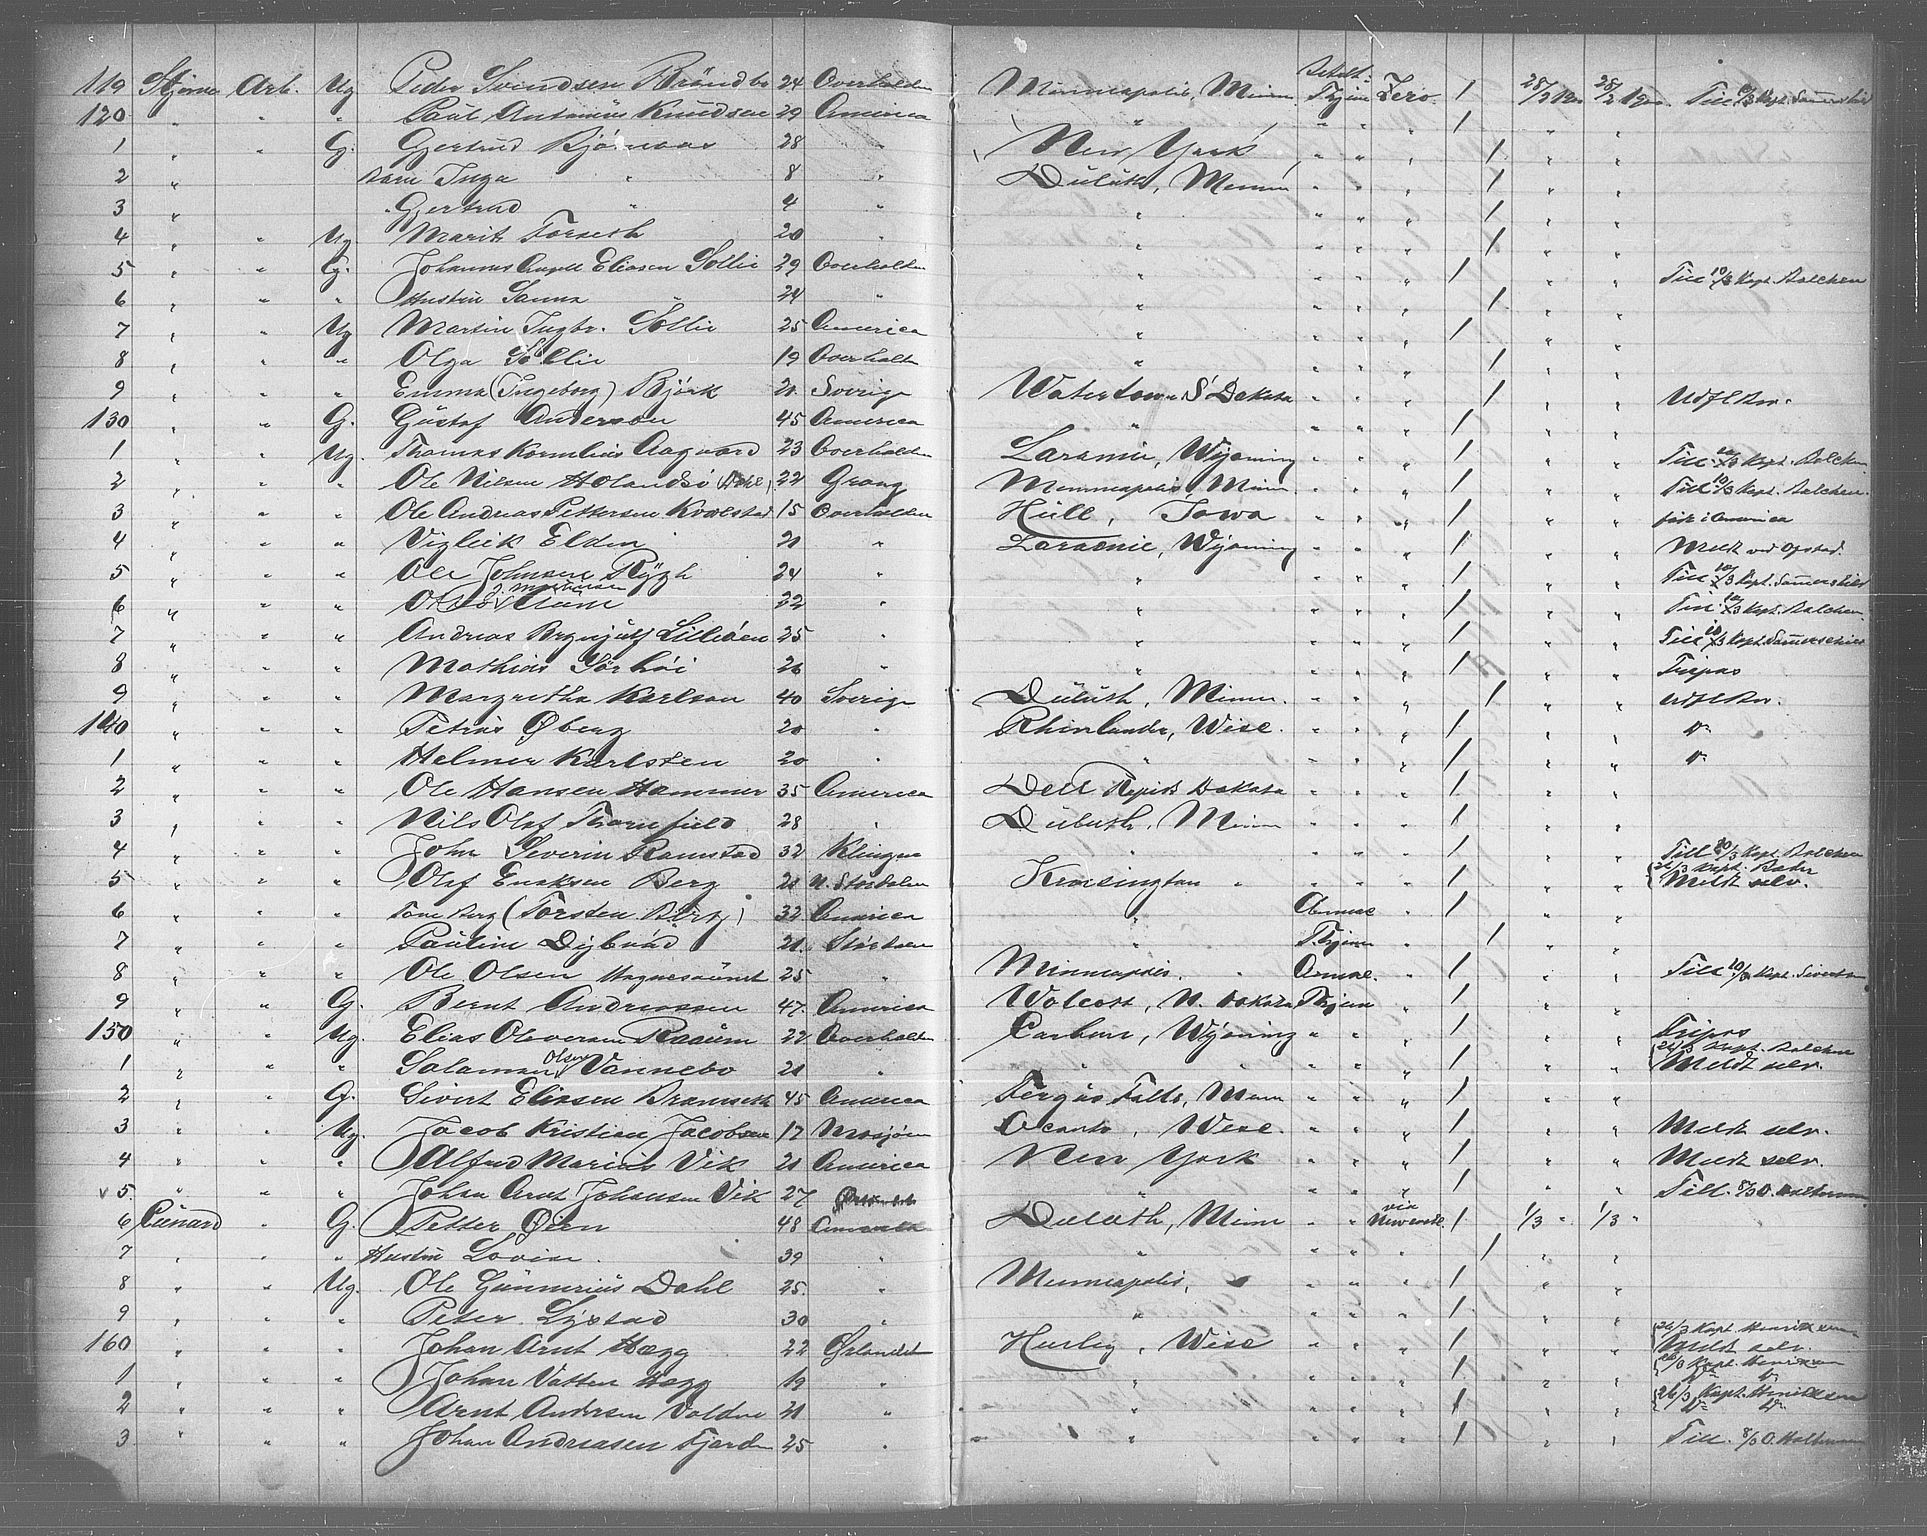 119 Stjerne Arb. Ug Peder Svindsen Brändbo 24 Overhalden Minneapolis, Minn Betalt. Thjem Zero. / 28/2 1900 28/2 1900 Till Kapt. Sammerskild
120 " " " Paul Antonius Knudsen 29 America " " " " / " "
1 " " G. Gjertrud Bjørnaas 28 " New York " " " / " "
2 " Barn Inga " 8 " Duluth, Minn " " " / " "
3 " " Gjertrud " 4 " " " " " / " "
4 " " Ug Marit Forseth 20 " " " " " / " "
5 " " G. Johannes Angell Eliasen Sollie 29 Overhalden " " " " / " " Till 10/3 Kapt. Balchen
6 " " " Hustru Sanna " 24 " " " " " / " "
7 " " Ug Martin Ingbr. Sollie 25 America " " " " / " "
8 " " " Olga Sollie 19 Overhalden " " " " / " "
9 " " " Emma (Ingeborg) Björk 21 Sverige Watertown S Dakota " " " / " "
130 " G. Gustaf Anderson 45 America " " " " / " "
1 " " Ug. Thomas Kornelius Aagaard 23 Overhalden Laramie, Wyoming " " " / " " Till 10/3 Kapt. Balchen
2 " " " Ole Nilsen Holandsö (Dahl) 22 Grong Minneapolis, Minn. " " " / " " Till 10/3 Kapt. Balchen.
3 " " " Ole Andreas Pettersen Kvalstad 15 Overhalden Hull, Iowa " " " / " " født i America
4 " " " Vigleik Elden 21 " Laramie, Wyoming " " " / " " Meldt ved Opstad.
5 " " " Ole Johnsen Rygh 24 " " " " " / " " Till 10/3 Kapt. Sammerskild
6 " " " 22 " " " " " / " " Till 10/3 Kapt. Balchen
7 " " " Andreas Brynjulf Lilleöen 25 " " " " " / " " Till 10/3 Kapt. Sammerskild
8 " " " Mathias Sörhöi 26 " " " " " / " " Fripas
9 " " " Margretha Karlson 40 Sverige Duluth, Minn. " " " / " "
140 " " " Petrus Øberg 20 " Rhinlander, Wisc. " " " / " "
1 " " " Helmer Karlsten 20 " " " " " / " "
2 " " " Ole Hansen Hammer 35 America Dell Rapids Dakota " " " / " "
3 " " " Nils Olof Thornfield 28 " Duluth, Minn " " " / " "
4 " " " John Severin Ramstad 32 Klingen " " " " / " " Till 20/3 Kapt. Balchen
5 " " " Olof Eriksen Berg 21 N. Stördalen Kensington " " " " / " " Meldt selv.
6 " " " Tom Berg (Torsten Berg) 32 America " " / " "
7 " " " Pauline Digbvad 21. Stördalen " Thjem " / " "
8 " " " Ole Olsen 25 " Minneapolis. " " / " " Till 20/3 Kapt. Sivertsen
9 " " G. Bernt Andreassen 47. America Wolcott, N. Dakota Thjem " / " "
150 " " Ug. Elias Oleversen Raaum 22 Overhalden Carbon, Wyoming " " " / " " Fripas
1 " " " Salaman Olsen Vannebo 21 " " " " " / " " 24/3 Kapt. Balchen Meldt selv.
2 " " G. Sivert Eliasen Bramseth 45 America Fergus Falls, Minn " " " / " "
3 " " Ug. Jacob Kristian Jacobsen 17 Mosjøen Oconto, Wisc. " " " / " " Meldt selv.
4 " " " Alfred Marius Vik 21 America New York " " " / " " Meldt selv.
v 5. " " " Johan Arnt Johansen Vik 27 " " " " / " " Till. 8/3 O.
6 Cunard " G. Petter Øien 48 America Duluth, Minn " " via Newcastle. / 1/3 " 1/3 "
7 " " " Hustru Lovise 39 " " " " " / " "
8 " " Ug. Ole Gunnerius Dahl 25. " Minneapolis, " " " " / " "
9 " " " Peter Lystad 30 " " " " " / " "
160 " " " Johan Arnt Hægg 22 Ørlandet Hurley, Wisc " " " / " " 26/3 Kapt. Henriksen Meldt selv.
1 " " " Johan Vatten Hægg 19 " " " " " / " " 26/3 Kapt. Henriksen
2 " " " Arnt Andersen Valdne 21 " " " " " / " " 26/3 Kapt. Henriksen
3 " " " Johan Andreasen Fjorden 25 " " " " " / " " Till. 8/3 O. Holterman